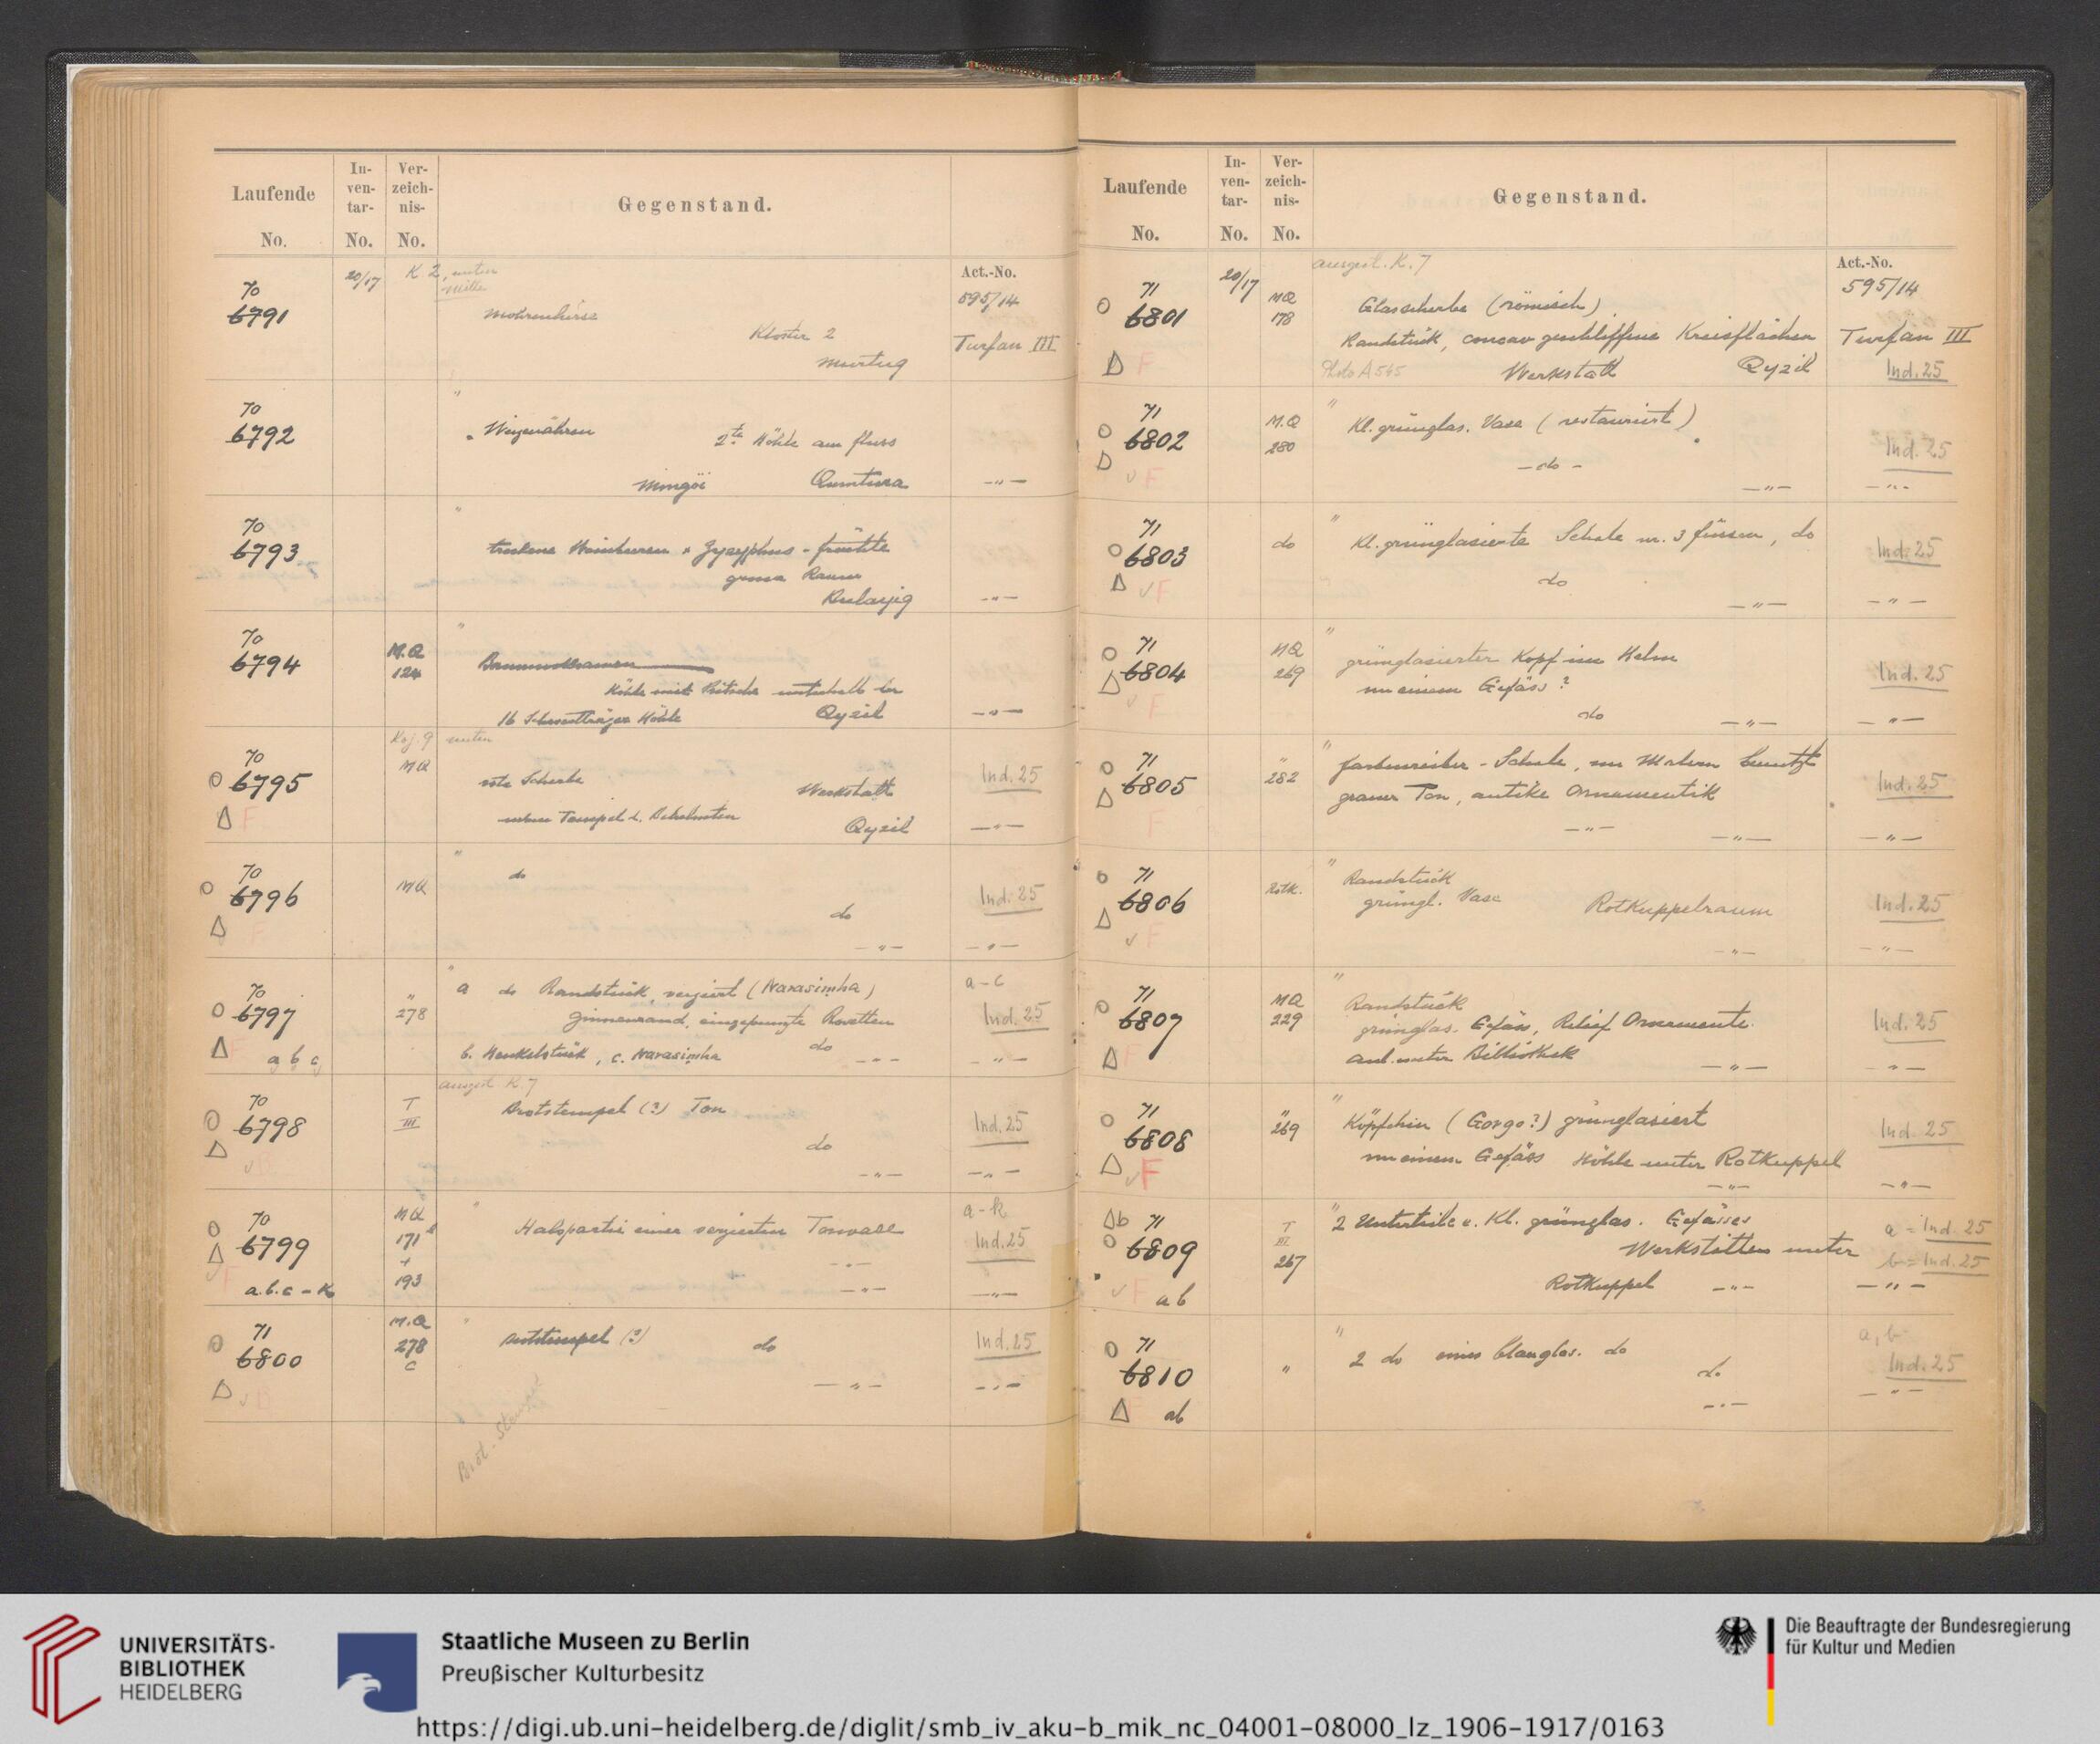 Laufende No.
In-ven-tar-No.
Ver-zeich-nis-No.
Gegenstand.
Act.-No.
20/17
K 2, unten
Mitte
70
6791
Mohrenhirse
Kloster 2
Murtug
595/14
Turfan III
70
6792
"
Weizenähren
2te Höhle am fluss
Mingöi Qumtura
-"-
70
6793
"
trockene Weinbeeren + Zyzyphus-früchte
grosser Raum
Bulayig
-"-
70
6794
M.Q
124
"
Baumwollsamen
Höhle mit Pritsche unterhalb der
16 Schwertträger Höhle Qyzil
-"-
Koj. 9 unten
70
6795
F
MQ
rote Scherbe
Werkstatt
neben Tempel d. Behelmten
Qyzil
Ind. 25
-"-
70
6796
F
MQ
"
do
do
-"-
Ind. 25
-"-
70
6797
F
a b c
"
278
"
a do Randstück, verziert (Narasimha)
Innenrand, eingepunzte Rosetten
b. Henkelstück, c. Narasimha do
-"-
a-c
Ind. 25
-"-
ausgest. K. 7
70
6798
T
III
Brotstempel (?) Ton
do
-"-
Ind. 25
-"-
70
6799
F
a.b.c - k
MQ
171
+
193
"
Halspartie einer verzierten Tonvase
-"-
-"-
a-k
Ind. 25
-"-
71
6800
M.Q
278
c
"
Brotstempel (?) do
-"-
Ind. 25
-"-
Brot-Stempel
Laufende No.
In-ven-tar-No.
Ver-zeich-nis-No.
Gegenstand.
Act.-No.
20/17
ausgest. K. 7
71
6801
F
MQ
178
Glasscherbe (römisch)
Randstück, concav geschliffene Kreisflächen
Photo A 545 Werkstatt Qyzil
595/14
Turfan III
Ind. 25
71
6802
F
M.Q
280
"
Kl. grünglas. Vase (restauriert)
-do-
-"-
Ind. 25
-"-
71
6803
F
do
"
Kl. grünglasierte Schale m. 3 füssen, do
do
-"-
Ind. 25
-"-
71
6804
F
MQ
269
"
grünglasierter Kopf im Helm
von einem Gefäss?
do
-"-
Ind. 25
-"-
71
6805
F
"
282
"
farbenreiber-Schale, von Malern benutzt
grauer Ton, antike Ornamentik
-"-
-"-
Ind. 25
-"-
71
6806
F
Rotk.
"
Randstück
grüngl. Vase Rotkuppelraum
-"-
Ind. 25
-"-
71
6807
F
MQ
229
"
Randstück
grünglas. Gefäss, Relief Ornamente
anl. unter Bibliothek
-"-
Ind. 25
-"-
71
6808
F
"
269
"
Köpfchen (Gorgo?) grünglasiert
von einem Gefäss Höhle unter Rotkuppel
-"-
Ind. 25
-"-
b
71
6809
F
ab
T
III
267
"
2 Unterteile e. Kl. grünglas. Gefässes
Werkstätten unter
Rotkuppel -"-
a = Ind. 25
b = Ind. 25
-"-
71
6810
ab
"
"
2 do eines blauglas. do
do
-"-
a, b
Ind. 25
-"-
UNIVERSITÄTS-
BIBLIOTHEK
HEIDELBERG
Staatliche Museen zu Berlin
Preußischer Kulturbesitz
Die Beauftragte der Bundesregierung
für Kultur und Medien
https://digi.ub.uni-heidelberg.de/diglit/smb_iv_aku-b_mik_nc_04001-08000_lz_1906-1917/0163